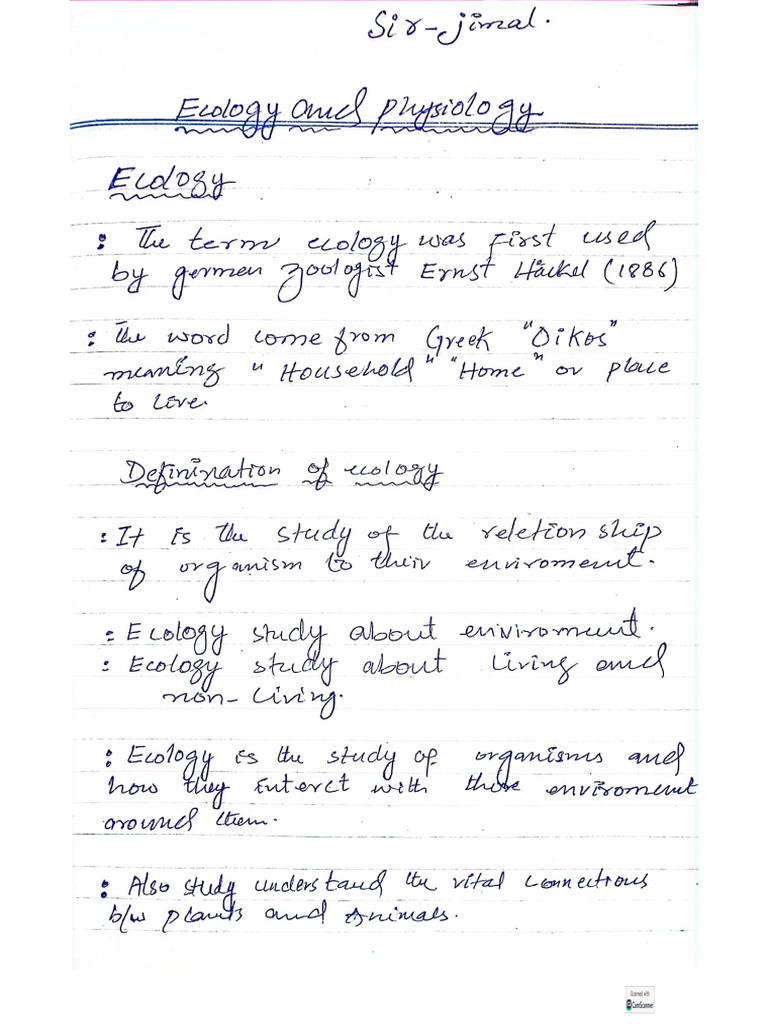 Sir-jimal.
Ecology and physiology
Ecology
: The term ecology was First used
by germen zoologist Ernst Häckel (1886)
: The word come from Greek "Oikos"
meaning "Household" "Home" or place
to live.
Definination of ecology
: It is the study of the reletion ship
of organism to their enviroment.
: Ecology study about enviroment.
: Ecology study about living and
non-living.
: Ecology is the study of organisms and
how they interct with there enviroment
around them.
: Also study understand the vital connections
b/w plants and Animals.
Scanned with
CamScanner